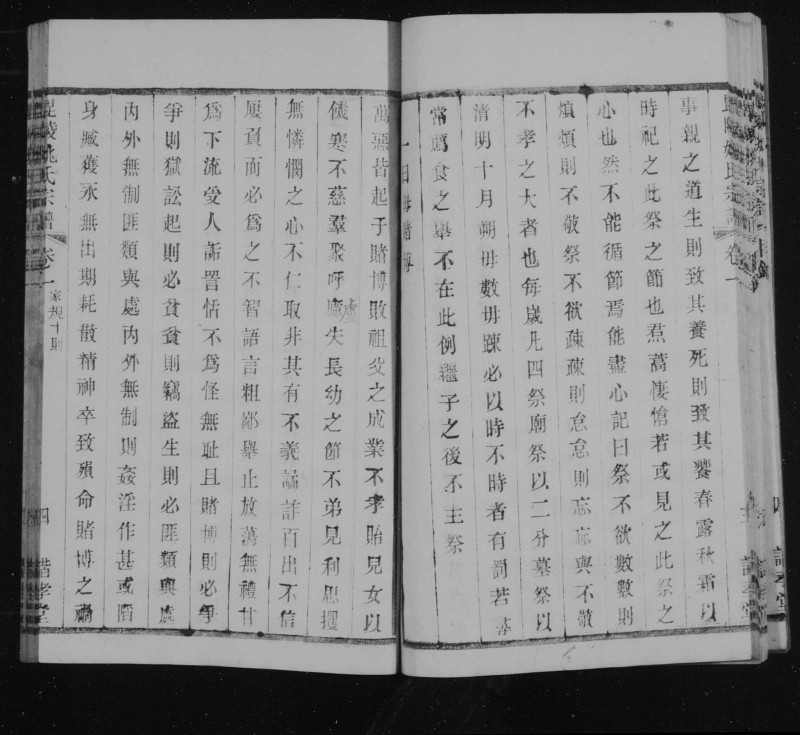 事親之道生則致其養死則致其饗春露秋霜以
時祀之此祭之節也焄蒿悽愴若或見之此祭之
心也然不能循節焉能盡心記曰祭不欲數數則
煩煩則不敬祭不欲疎疎則怠怠則忘忘與不敬
不孝之大者也每歲凡四祭廟祭以二分墓祭以
清明十月朔毋數毋踈必以時不時者有罰若
常薦食之舉不在此例繼子之後不主祭
一曰毋賭博
萬惡皆起于賭博敗祖父之成業不孝貽兒女以
饑寒不慈羣聚呼盧失長幼之節不弟見利思攫
無憐憫之心不仁取非其有不義譎詐百出不信
屢負而必為之不智語言粗鄙舉止放蕩無禮甘
為下流受人詬詈恬不為怪無耻且賭博則必爭
爭則獄訟起則必貧貧則竊盜生則必匪類與處
內外無制匪類與處內外無制則姦淫作甚或陷
身臧獲永無出期耗散精神卒致殞命賭博之禍
毘陵姚氏宗譜 卷一 家規十則 四 諧孝堂